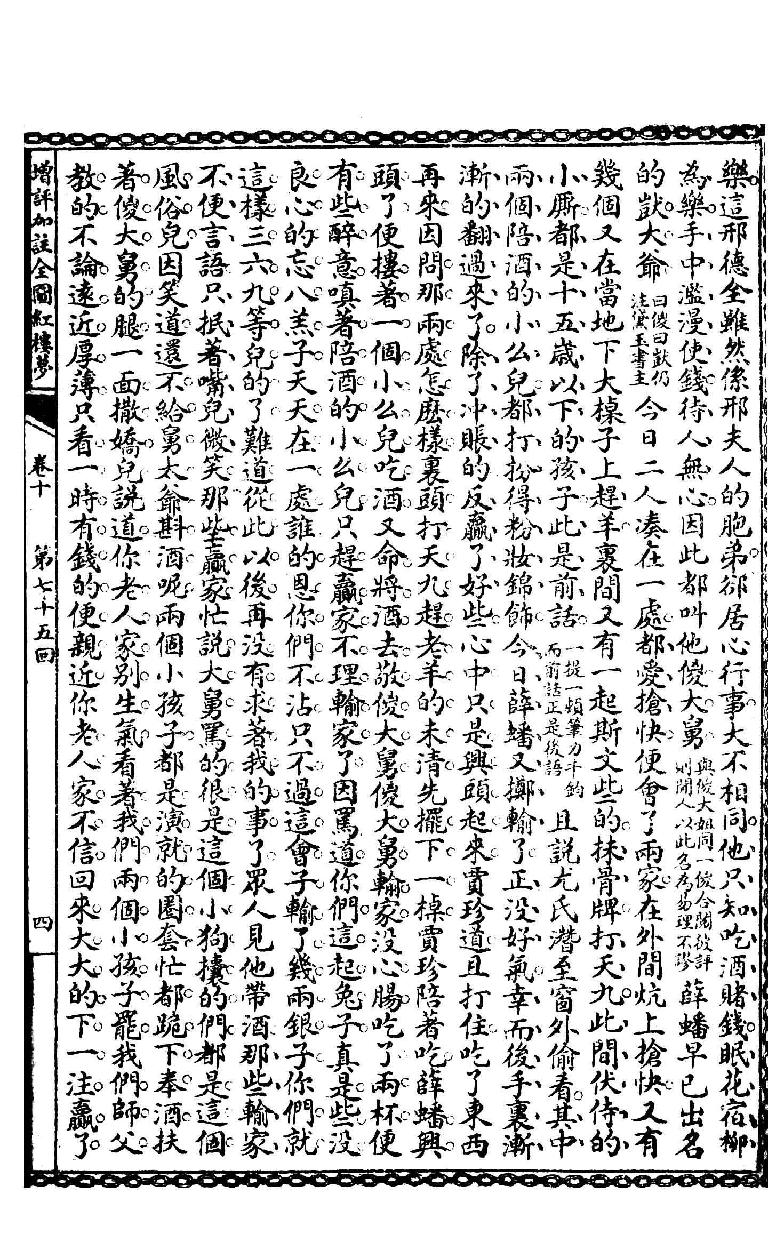 樂這邢德全雖然係邢夫人的胞弟卻居心行事大不相同他只知吃酒賭錢眠花宿柳
為樂手中濫漫使錢待人無心因此都叫他傻大舅與傻大姐同一傻合閱故評則閱人以此名為易理不謬薛蟠早已出名
的獃大爺曰傻曰獃仍注黛玉書主今日二人湊在一處都愛搶快便會了兩家在外間炕上搶快又有
幾個又在當地下大棹子上趕羊裏間又有一起斯文些的抹骨牌打天九此間伏侍的
小厮都是十五歲以下的孩子此是前話一提一頓筆力千鈞而前話正是後語且說尤氏潛至窗外偷看其中
兩個陪酒的小么兒都打扮得粉妝錦飾今日薛蟠又擲輸了正没好氣幸而後手裏漸
漸的翻過來了除了冲賬的反贏了好些心中只是興頭起來賈珍道且打住吃了東西
再來因問那兩處怎麽樣裏頭打天九趕老羊的未清先擺下一棹賈珍陪著吃薛蟠興
頭了便摟著一個小么兒吃酒又命將酒去敬傻大舅傻大舅輸家没心腸吃了兩杯便
有些醉意嗔著陪酒的小么兒只趕贏家不理輸家了因罵道你們這起兔子真是些没
良心的忘八羔子天天在一處誰的恩你們不沾只不過這會子輸了幾兩銀子你們就
這樣三六九等兒的了難道從此以後再没有求著我的事了眾人見他帶酒那些輸家
不便言語只抿著嘴兒微笑那些贏家忙説大舅罵的很是這個小狗攮的們都是這個
風俗兒因笑道還不給舅太爺斟酒呢兩個小孩子都是演就的圈套忙都跪下奉酒扶
著傻大舅的腿一面撒嬌兒説道你老人家别生氣看著我們兩個小孩子罷我們師父
教的不論遠近厚薄只看一時有錢的便親近你老人家不信回來大大的下一注贏了
增評加註全圖紅樓夢
卷十
第七十五回
四